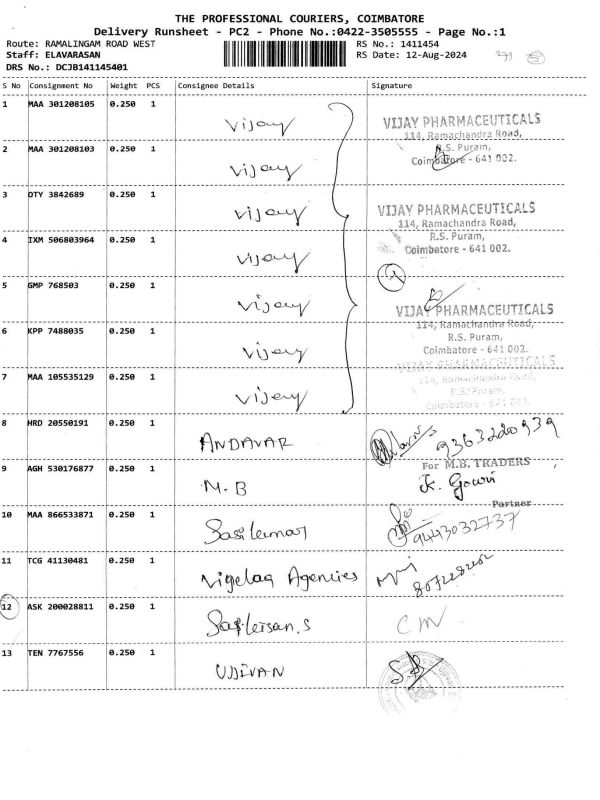 THE PROFESSIONAL COURIERS, COIMBATORE
Delivery Runsheet - PC2 - Phone No.:0422-3505555 - Page No.:1
Route: RAMALINGAM ROAD WEST RS No.: 1411454
Staff: ELAVARASAN RS Date: 12-Aug-2024
DRS No.: DCJB141145401
S No Consignment No Weight PCS Consignee Details Signature
1 MAA 301208105 0.250 1 Vijay VIJAY PHARMACEUTICALS
114, Ramachandra Road,
2 MAA 301208103 0.250 1 Vijay R.S. Puram,
Coimbatore - 641 002.
3 DTY 3842689 0.250 1 Vijay VIJAY PHARMACEUTICALS
114, Ramachandra Road,
4 IXM 506803964 0.250 1 Vijay R.S. Puram,
Coimbatore - 641 002.
5 GMP 768503 0.250 1 Vijay VIJAY PHARMACEUTICALS
114, Ramachandra Road,
6 KPP 7488035 0.250 1 Vijay R.S. Puram,
Coimbatore - 641 002.
VIJAY PHARMACEUTICALS
7 MAA 105535129 0.250 1 Vijay 114, Ramachandra Road,
R.S. Puram,
Coimbatore - 641 002.
8 HRD 20550191 0.250 1 ANDAVAR 9363220939
9 AGH 530176877 0.250 1 M.B For M.B. TRADERS
K. Gowri
Partner
10 MAA 866533871 0.250 1 Sasikumar 9443032737
11 TCG 41130481 0.250 1 Agencies
12 ASK 200028811 0.250 1 CM
13 TEN 7767556 0.250 1